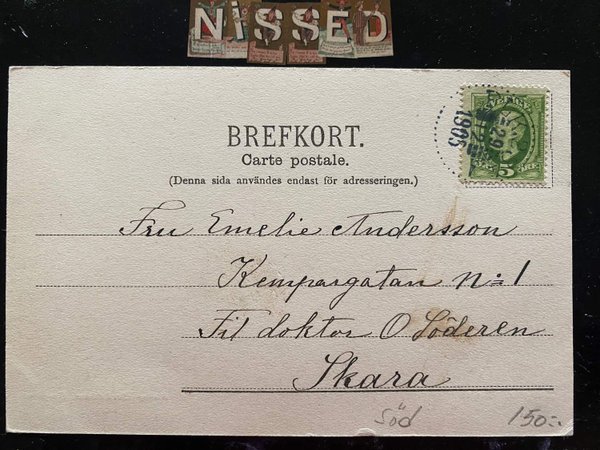 NiSSED
BREFKORT.
Carte postale.
(Denna sida användes endast för adresseringen.)
SVERIGE
5
ÖRE
29 12
1905
Fru Emelie Andersson
Kempargatan No 1
Til doktor O Söderen
Skara
Söd
150:-